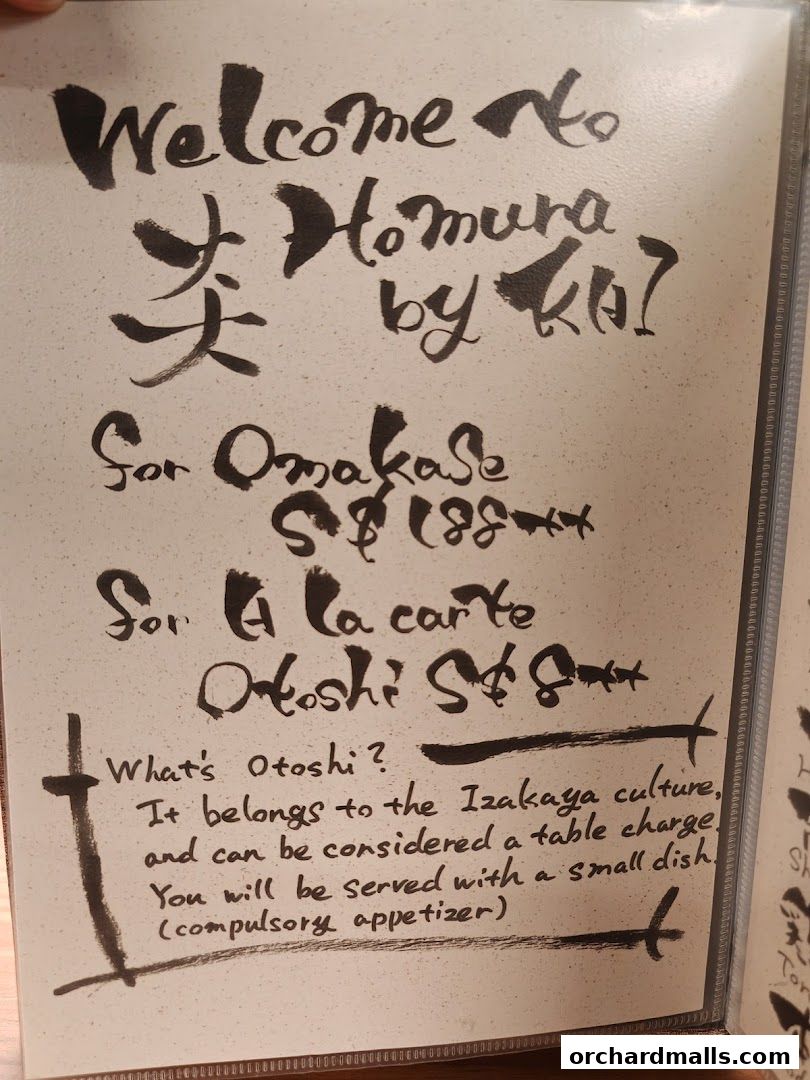 Welcome to
炎 Homura
by KAI
for Omakase
S$ 188++
for A la carte
Otoshi S$ 8++
What's Otoshi?
It belongs to the Izakaya culture,
and can be considered a table charge.
You will be served with a small dish.
(compulsory appetizer)
orchardmalls.com